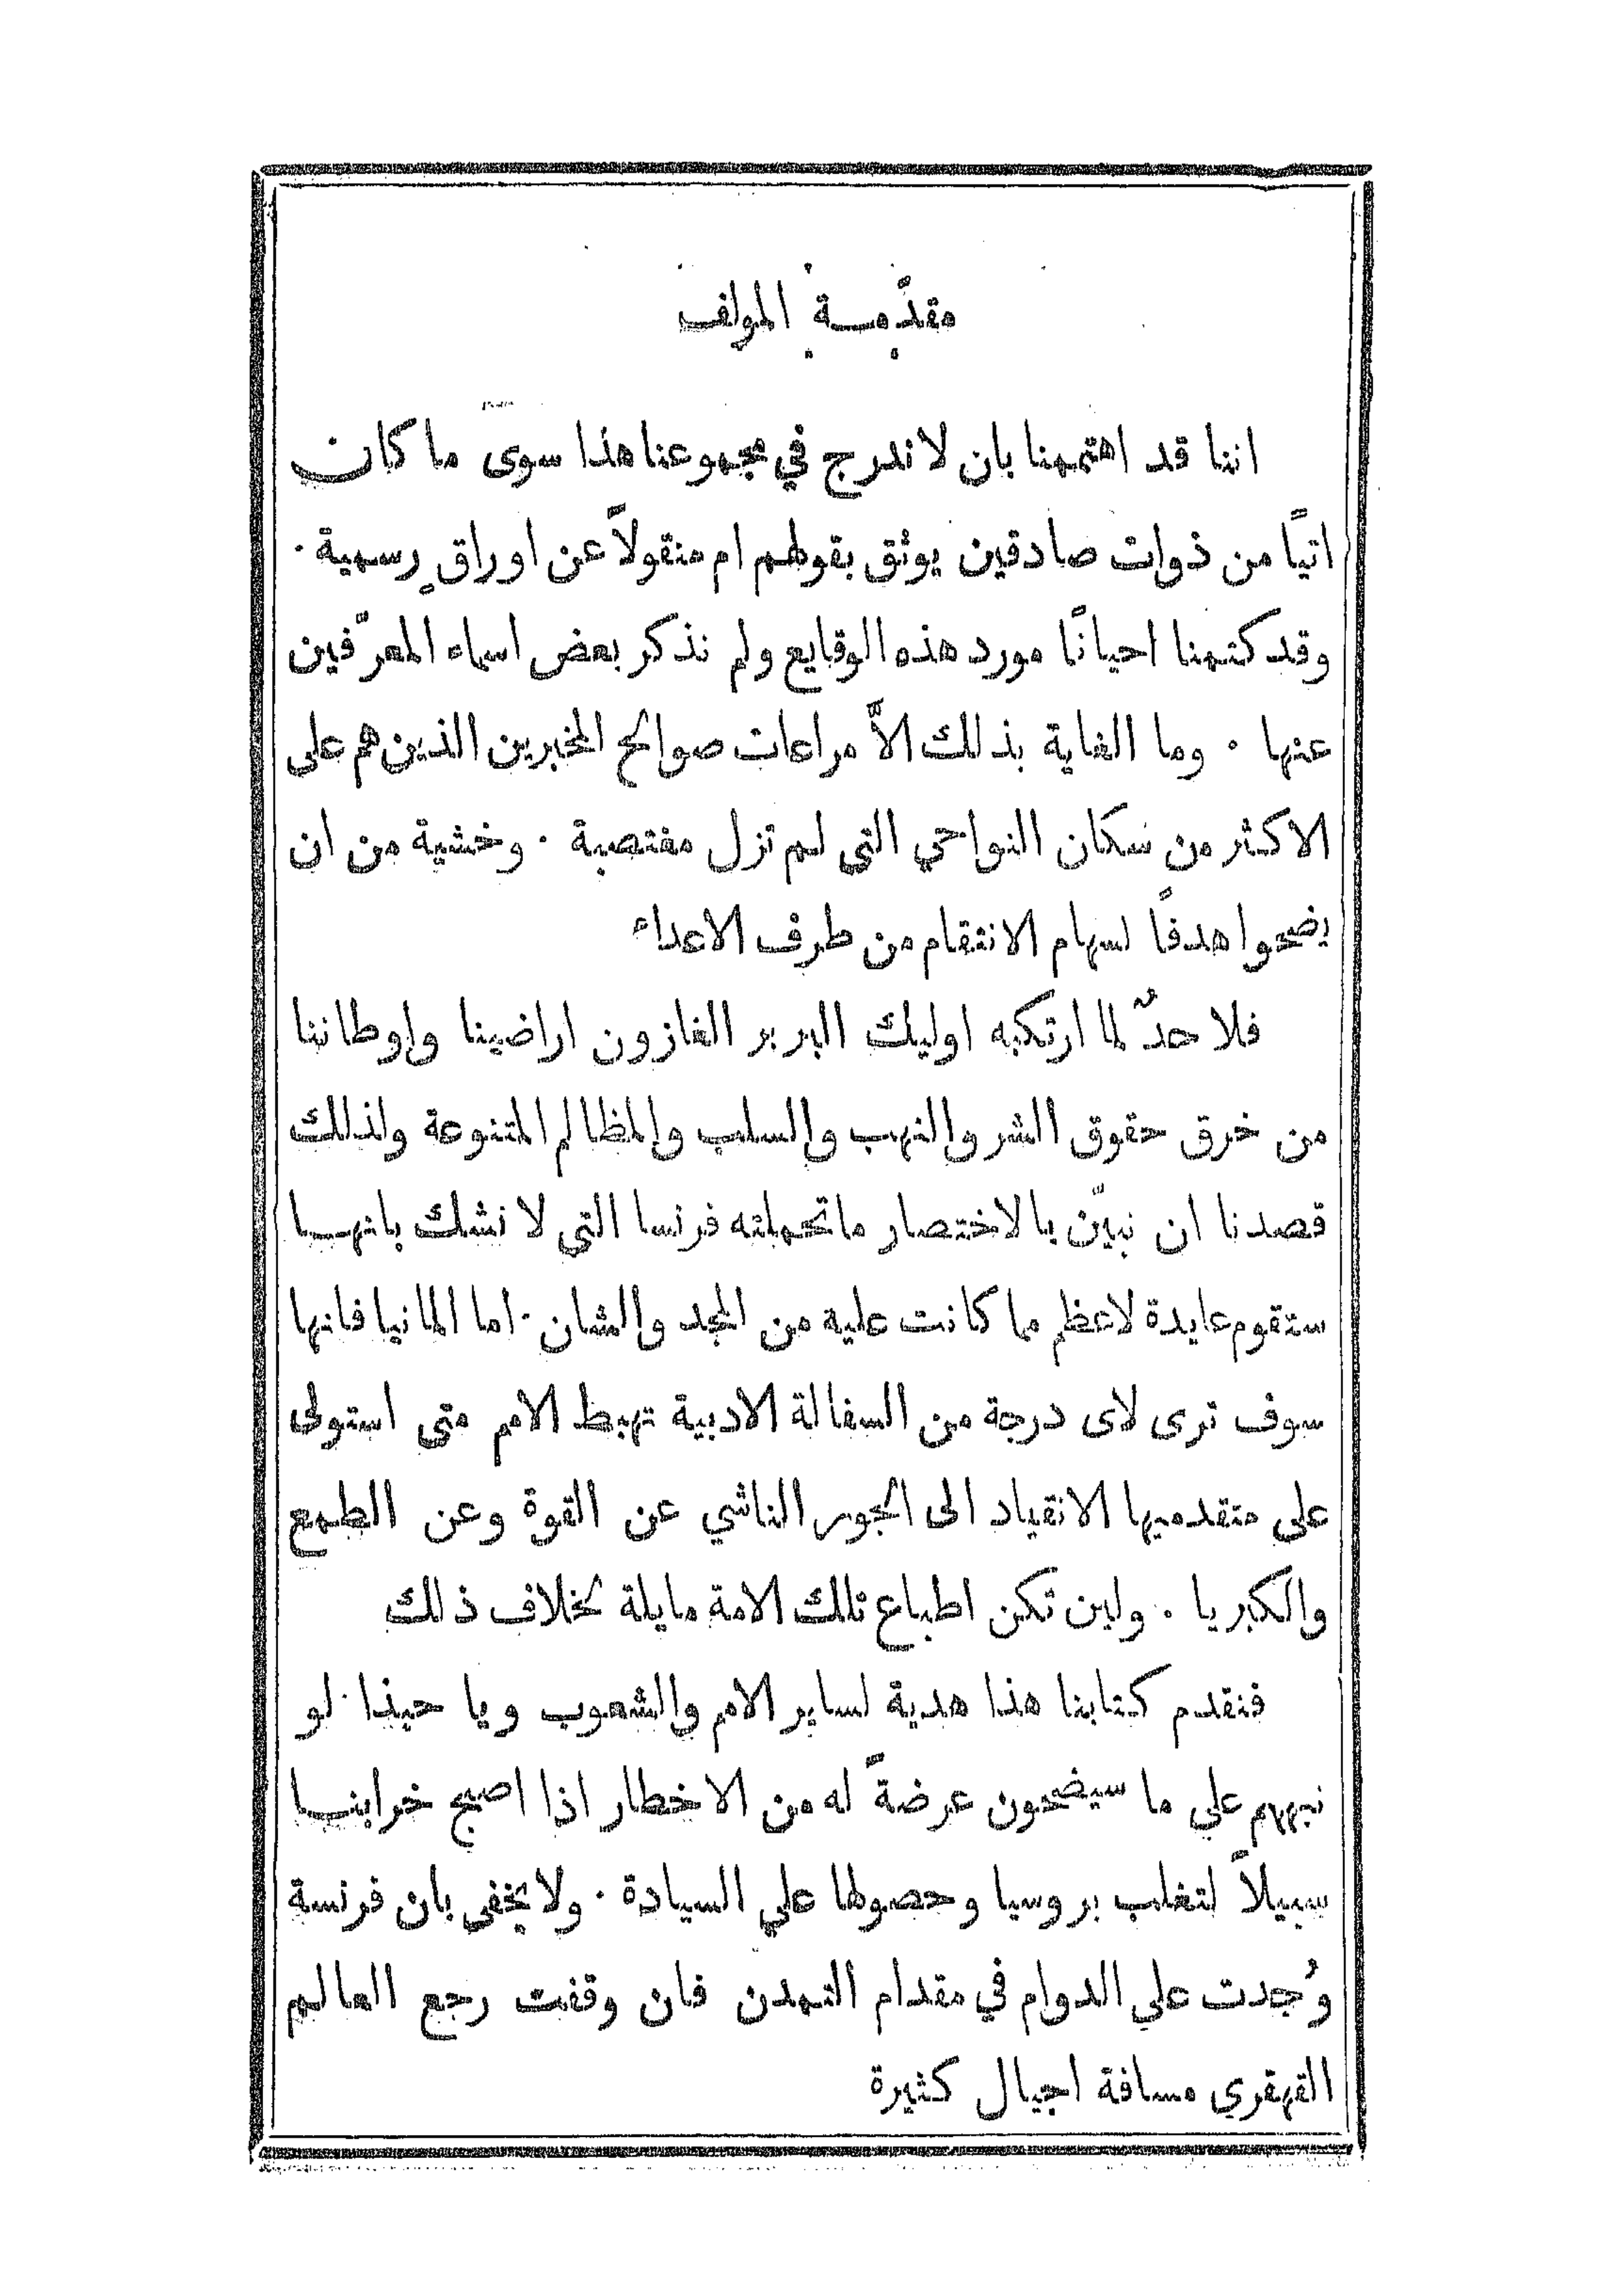 مقدّمة المولف
اننا قد اهتممنا بان لا ندرج في مجموعنا هذا سوى ما كان
اتيًا من ذوات صادقين يوثق بقولهم ام منقولاً عن اوراقٍ رسمية ·
وقد كتمنا احيانًا مورد هذه الوقايع ولم نذكر بعض اسماء المعرّفين
عنها · وما الغاية بذلك الاَّ مراعات صوالح المخبرين الذين هم على
الاكثر من سكان النواحي التي لم تزل مغتصبة · وخشية من ان
يضحوا هدفًا لسهام الانتقام من طرف الاعداء
فلا حدٌّ لما ارتكبه اوليك البربر الغازون اراضينا واوطاننا
من خرق حقوق الشر والنهب والسلب والمظالم المتنوعة ولذلك
قصدنا ان نبيّن بالاختصار ما تحملته فرنسا التي لا نشك بانها
ستقوم عايدة لاعظم مما كانت عليه من المجد والشان · اما المانيا فانها
سوف ترى لاى درجة من السفالة الادبية تهبط الامم متى استولى
على متقدميها الانقياد الى الجور الناشي عن القوة وعن الطمع
والكبريا · ولين تكن اطباع تلك الامة مايلة بخلاف ذلك
فنقدم كتابنا هذا هدية لساير الامم والشعوب ويا حبذا لو
نبههم على ما سيضحون عرضةً له من الاخطار اذا اصبح خرابنا
سبيلاً لتغلب بروسيا وحصولها على السيادة · ولا يخفى بان فرنسة
وُجدت على الدوام في مقدام التمدن فان وقفت رجع العالم
القهقري مسافة اجيال كثيرة